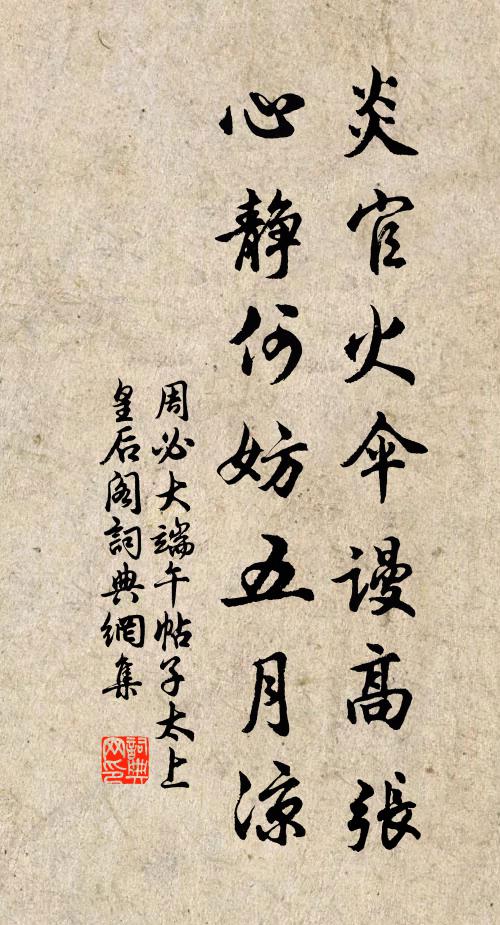 炎官火伞謾高張
心靜何妨五月涼
周必大端午帖子太上
皇后阁詞典網集
詞典網印